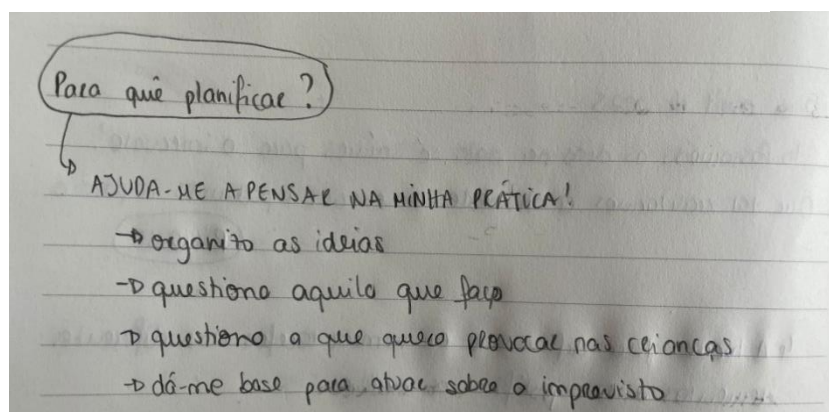 Para quê planificar?
AJUDA-ME A PENSAR NA MINHA PRÁTICA!
→ organizo as ideias
→ questiono aquilo que faço
→ questiono o que quero provocar nas crianças
→ dá-me base para atuar sobre o imprevisto